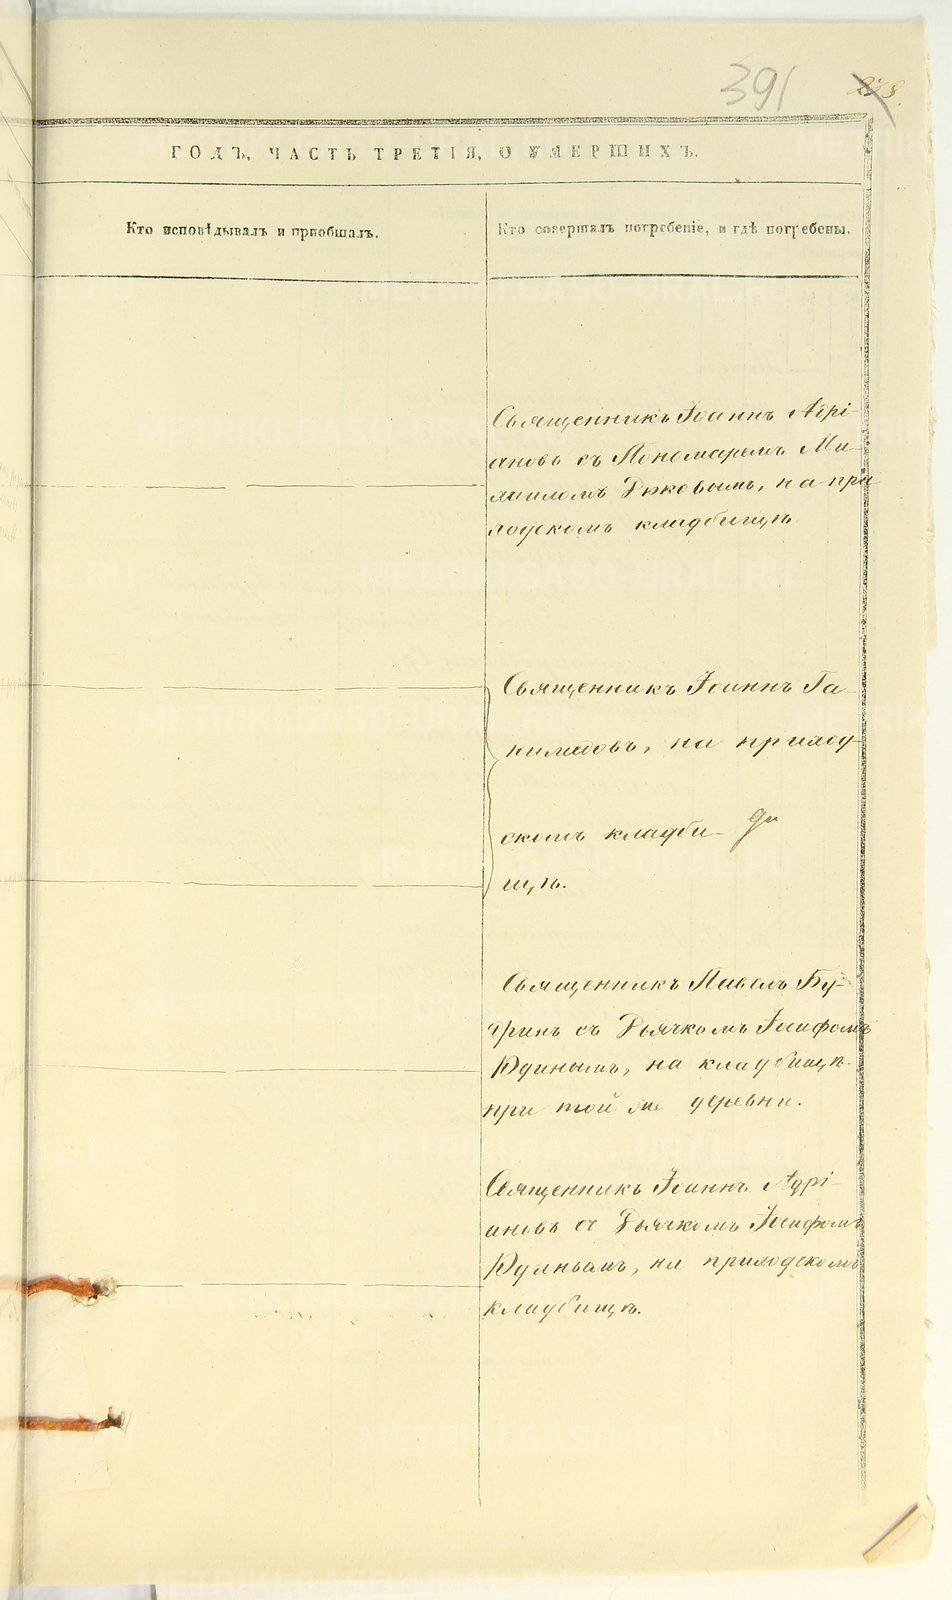 391
ГОДЪ, ЧАСТЬ ТРЕТІЯ, О УМЕРШИХЪ.
Кто исповѣдывалъ и пріобщалъ.
Кто совершалъ погребеніе, и гдѣ погребены.
Священникъ Іоаннъ Адрі-
ановъ съ Пономаремъ Ми-
хаиломъ Рыковымъ, на при
ходскомъ кладбищѣ
Священникъ Іоаннъ Га-
нимедовъ, на приход-
скомъ кладби-
щѣ.
Священникъ Павелъ Бу-
тринъ съ Дьячкомъ Іосифомъ
Юдинымъ, на кладбищѣ
при той же деревни.
Священникъ Іоаннъ Адрі-
ановъ съ Дьячкомъ Іосифомъ
Юдинымъ, на приходскомъ
кладбищѣ.
METRIKI.GASO-URAL.RU